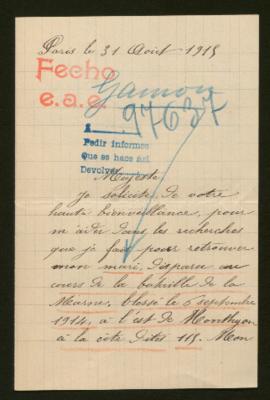 Paris le 31 Août 1915
Fecho
e.a.e.
Gamon
97637
1
Pedir informes
Que se hace así
Devolver
Majesté
je sollicite de votre
haute bienveillance, pour
m'aider dans les recherches
que je fait pour retrouver
mon mari, disparu au
cours de la bataille de la
Marne, blessé le 6 septembre
1914, à l'est de Monthyon
à la côte dites 115. Mon